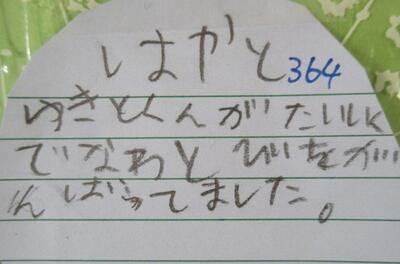 はやと 364
ゆきとくんがたいいく
でなわとびをが
んばってました。